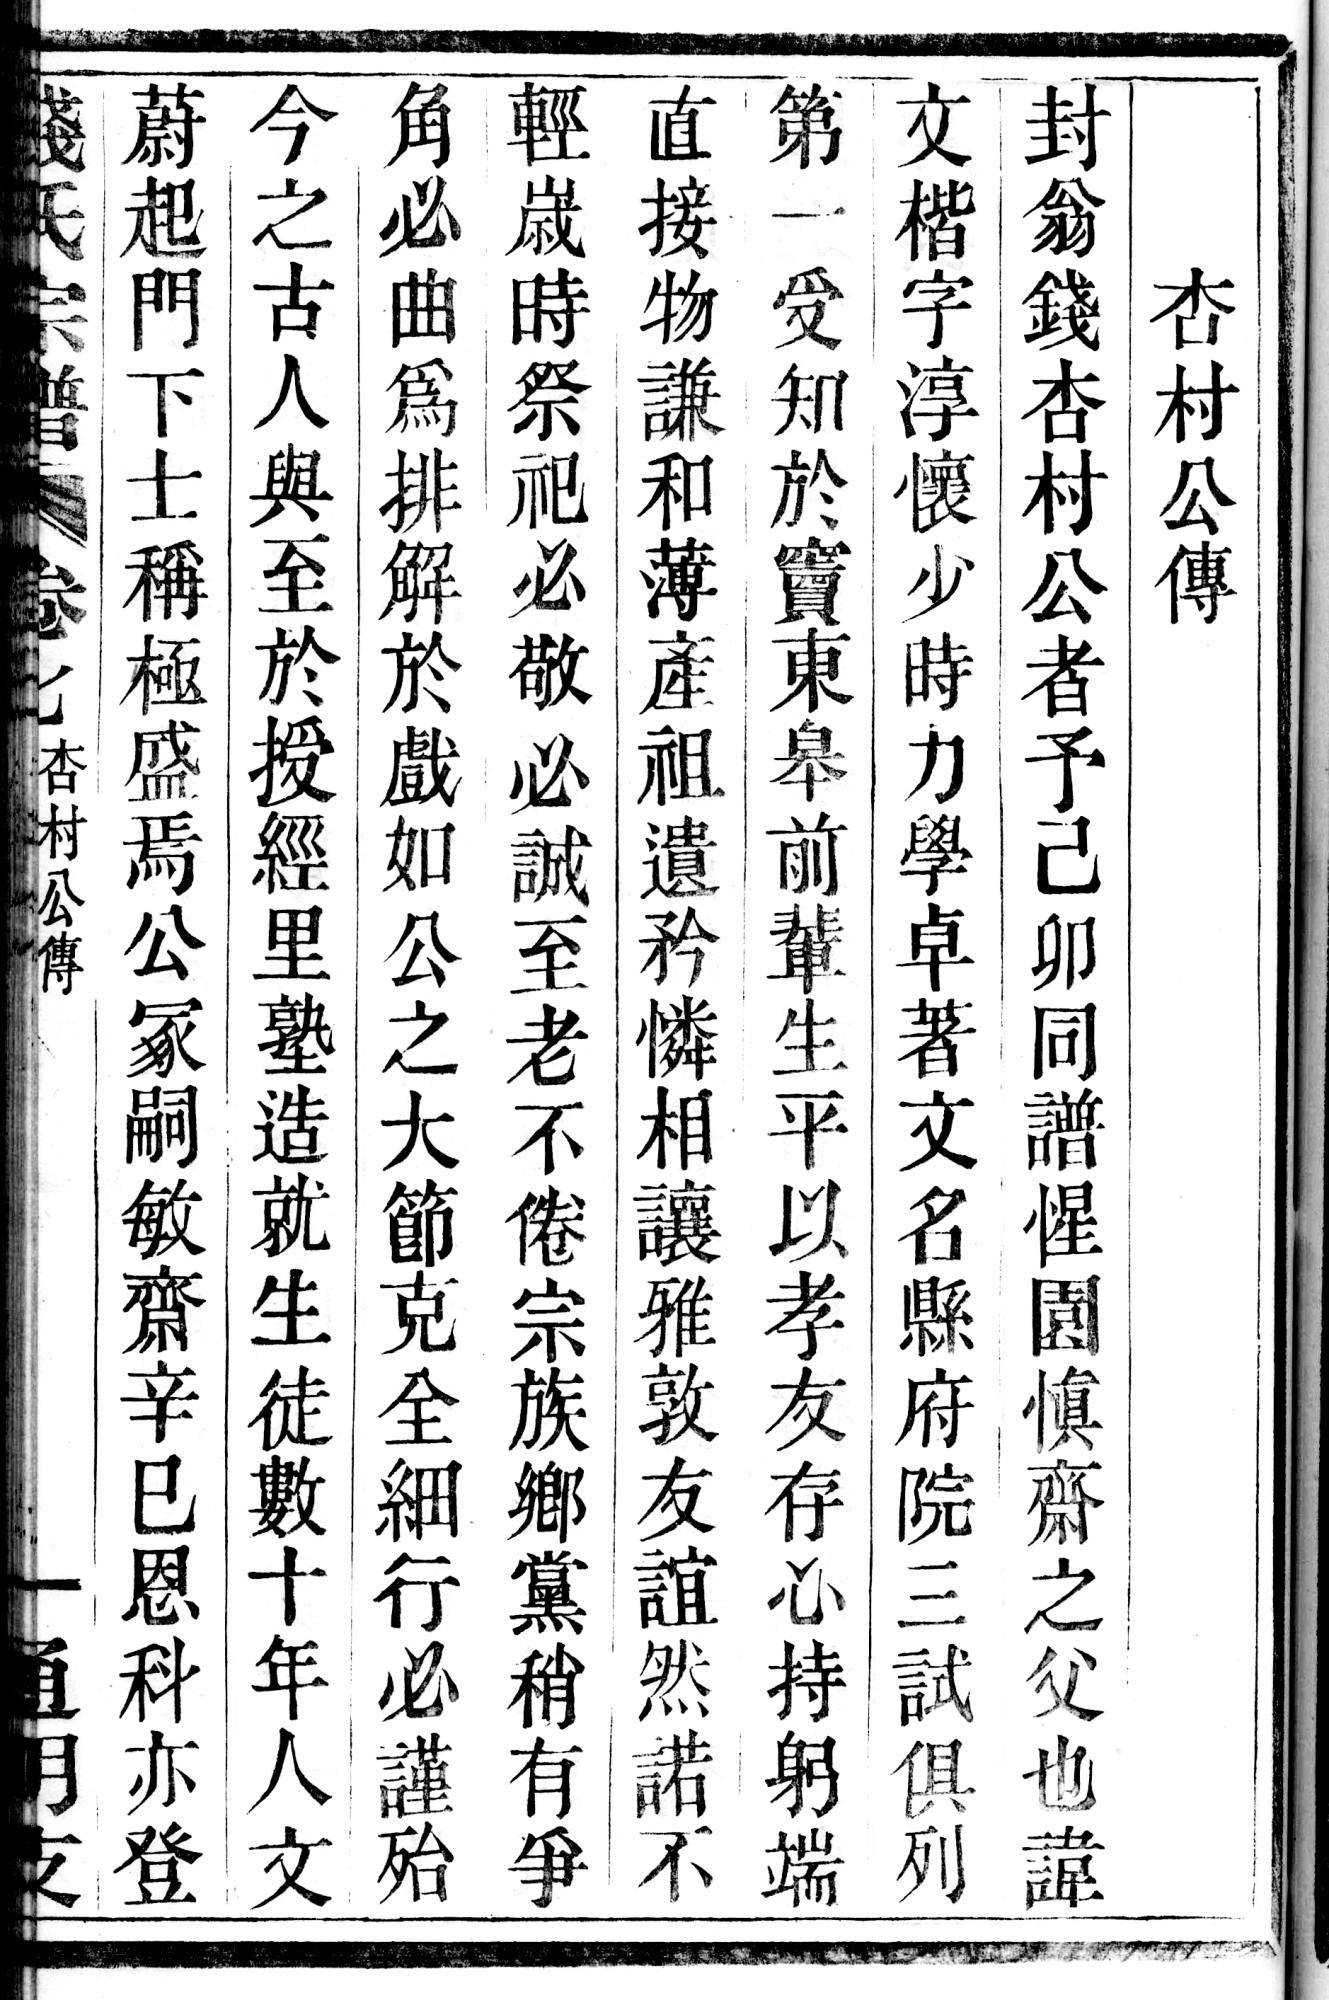 杏村公傳
封翁錢杏村公者予己卯同譜惺園慎齋之父也諱
文楷字淳懷少時力學卓著文名縣府院三試俱列
第一受知於竇東皋前輩生平以孝友存心持躬端
直接物謙和薄產祖遺矜憐相讓雅敦友誼然諾不
輕歲時祭祀必敬必誠至老不倦宗族鄉黨稍有爭
角必曲爲排解於戲如公之大節克全細行必謹殆
今之古人與至於授經里塾造就生徒數十年人文
蔚起門下士稱極盛焉公冢嗣敏齋辛巳恩科亦登
錢氏宗譜 卷七 杏村公傳 一 通明支